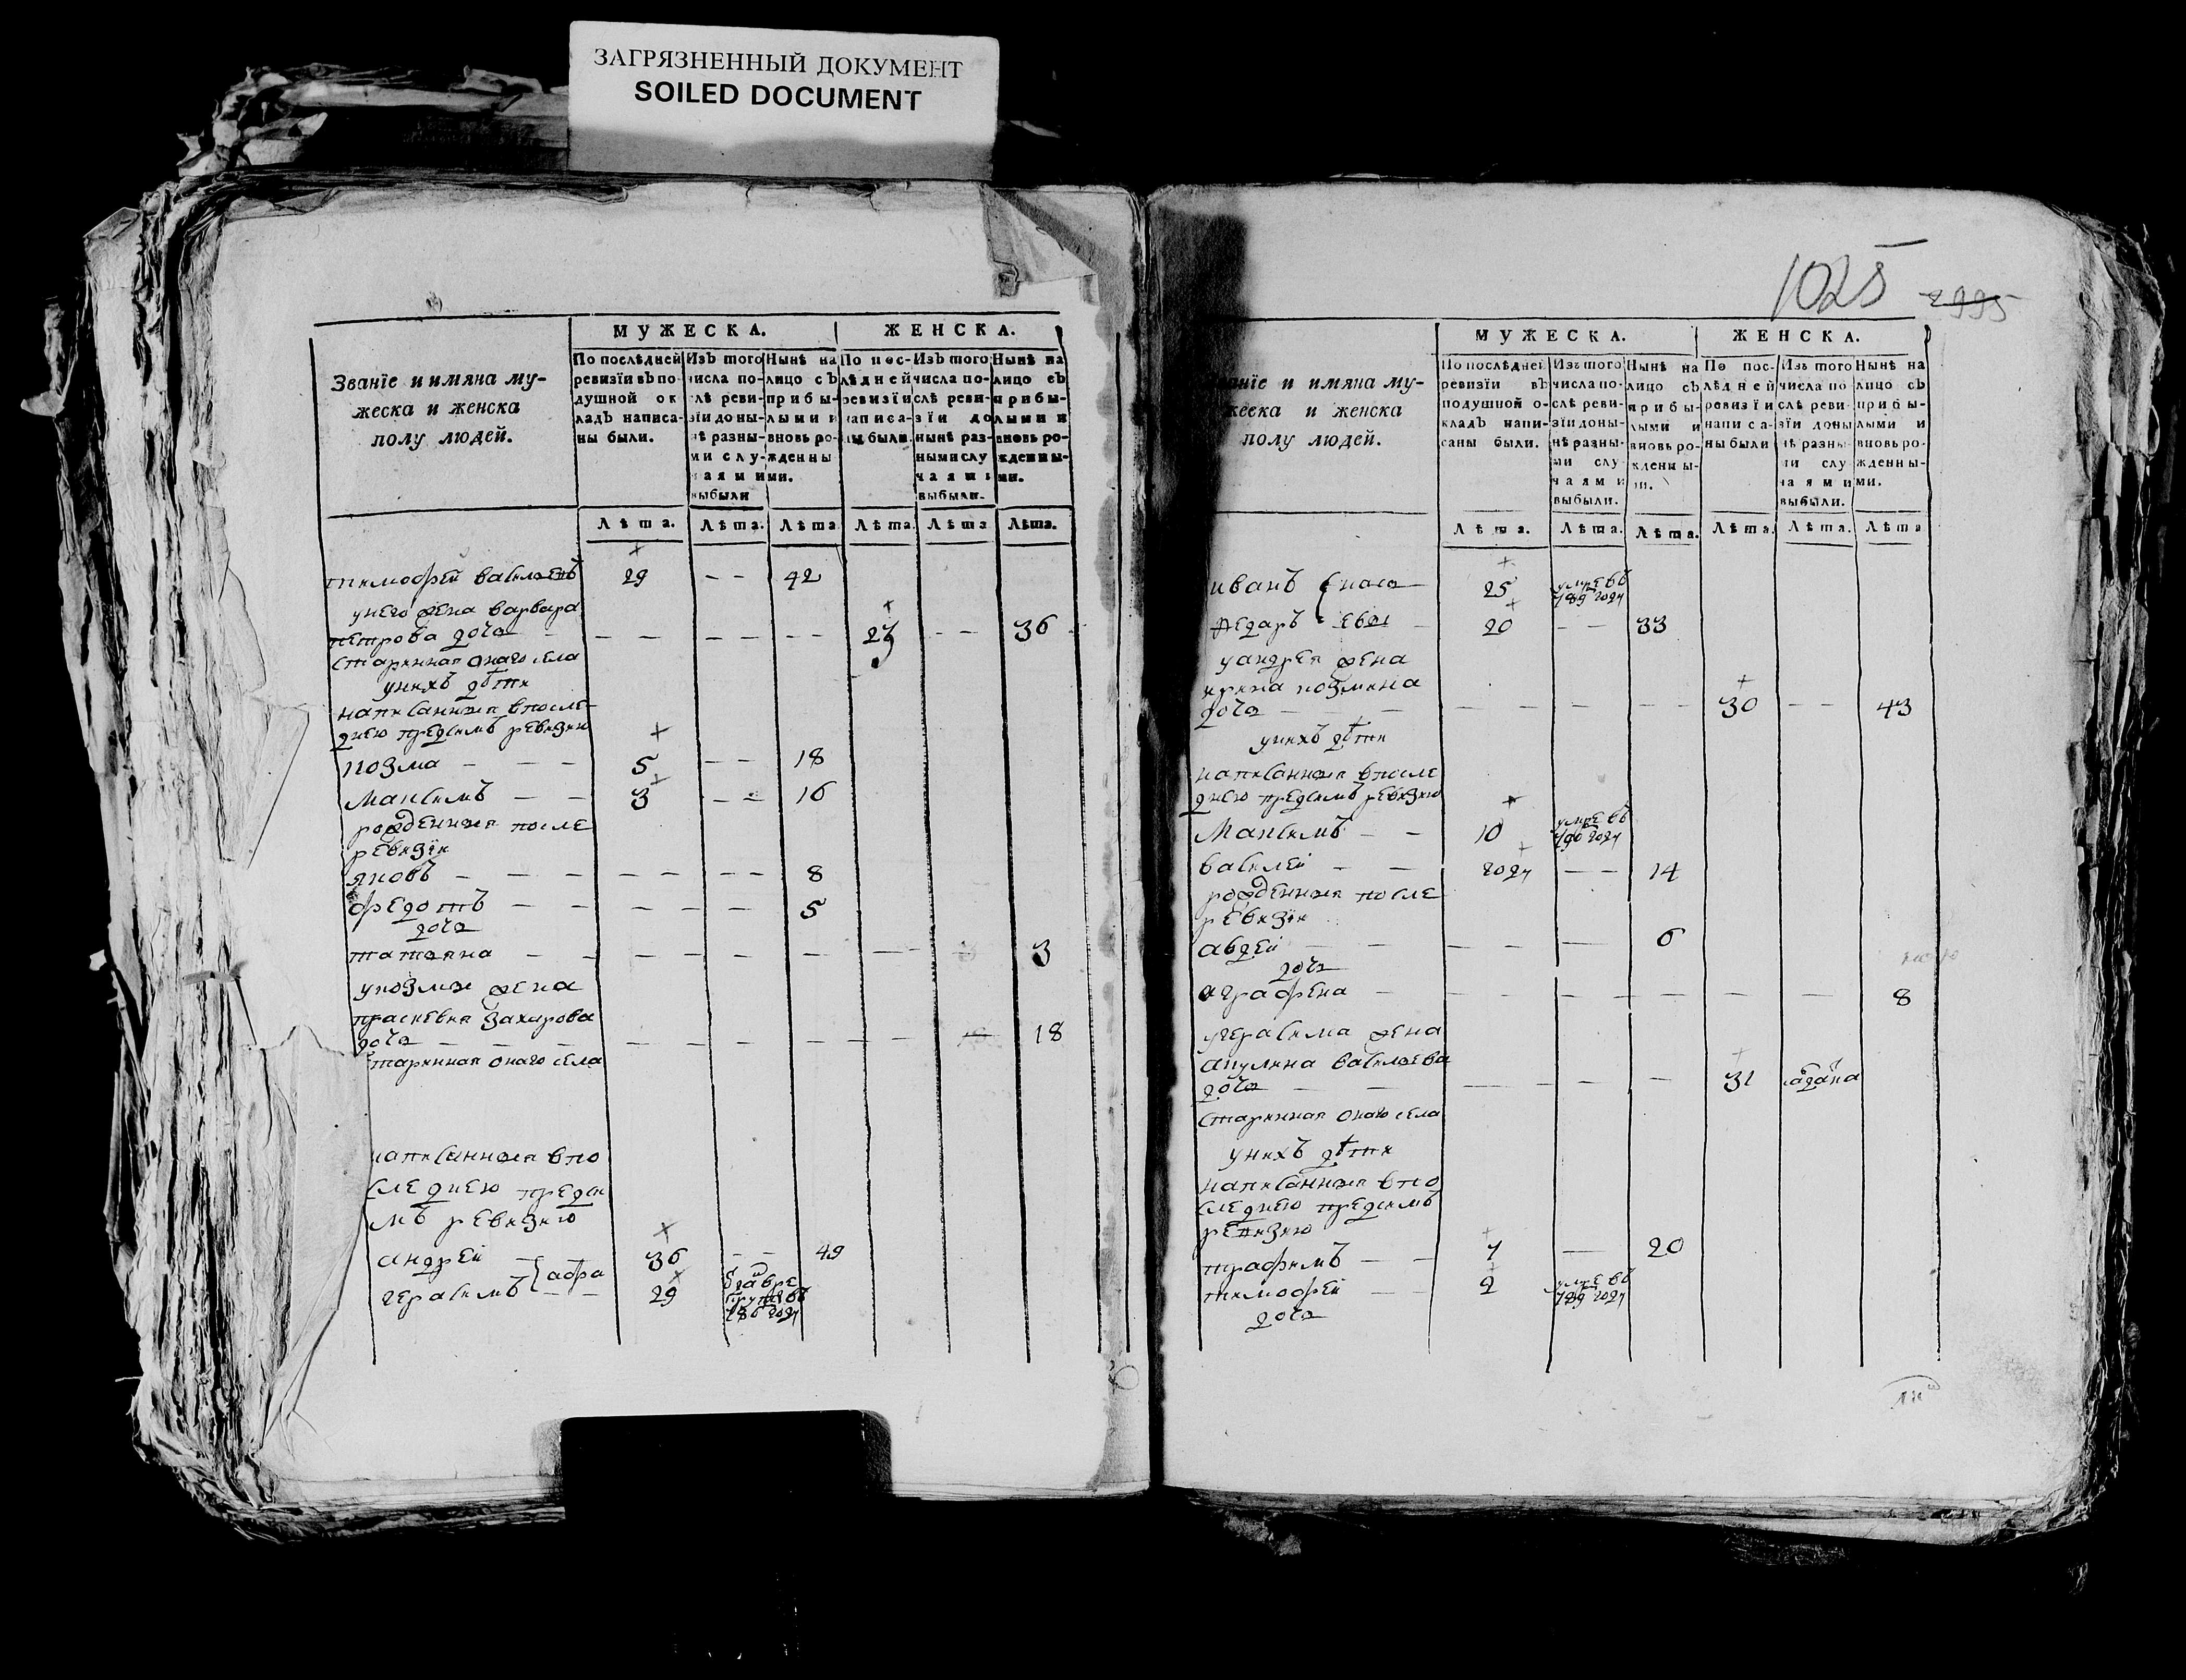 ЗАГРЯЗНЕННЫЙ ДОКУМЕНТ
SOILED DOCUMENT
МУЖЕСКА. ЖЕНСКА.
Званїе и имяна му-
жеска и женска
полу людей.
По послѣдней
ревизїи въ по-
душной ок
ладъ написа-
ны были.
Изъ того
числа по-
слѣ реви-
зїи доны-
нѣ разны-
ми слу-
чаями
выбыли
Нынѣ на
лицо съ
прибы-
лыми и
вновь ро-
жденны
ми.
По пос-
лѣдней
ревизїи
написа-
ны были.
Изъ того
числа по-
слѣ реви-
зїи до
нынѣ раз-
ными слу
чаями
выбыли.
Нынѣ на
лицо съ
прибы-
лыми и
вновь ро-
жденны-
ми.
Лѣта. Лѣта. Лѣта Лѣта. Лѣта Лѣта.
тимофей василъевъ 29 - - 42
у него жена варвара
петрова дочь - - - - - - 27 - - 36
старинная онаго села
у нихъ дѣти
написанныя в после-
днею предсимъ ревизию
козма - - - 5 - - 18
максимъ - - 3 - - 16
рожденныя после
ревизїи
яковъ - - - - - - - 8
федотъ - - - - - 5
дочь
татьяна - - - - - - - - - 3
у козмы жена
прасковья захарова
дочь - - - - - - - - - - 18
старинная онаго села
написанныя в по
следнею предси
мъ ревизию
андрей - 36 - - 49
афа
герасимъ - - 29 отдан в ре
круты въ
786 году
1025 2995
МУЖЕСКА. ЖЕНСКА.
Званїе и имяна му-
жеска и женска
полу людей.
По послѣдней
ревизїи въ
подушной о-
кладъ напи-
саны были.
Изъ того
числа по-
слѣ реви-
зїи доны-
нѣ разны-
ми слу-
чаями
выбыли.
Нынѣ на
лицо съ
прибы-
лыми и
вновь ро-
жденны-
ми.
По пос-
лѣдней
ревизїи
написа-
ны были
Изъ того
числа по
слѣ реви-
зїи доны
нѣ разны-
ми слу
чаями
выбыли.
Нынѣ на
лицо съ
прибы-
лыми и
вновь ро-
жденны-
ми.
Лѣта. Лѣта. Лѣта. Лѣта. Лѣта. Лѣта
иванъ 25 умре въ
789 году
федаръ евы - 20 - - 33
у андрея жена
ирина козмина
дочь - - - - - - - 30 - - 43
у нихъ дѣти
написанныя в после
днею предсимъ ревизию
максимъ - - 10 умре въ
790 году
василей - - году - - 14
рожденныя после
ревизїи
авдей - - - - - 6
дочь
аграфена - - - - - - - - 8
у герасима жена
акулина васильева
дочь - - - - - 31
старинная онаго села
у нихъ дѣти
написанныя в по
следнею предсимъ
ревизию
трафимъ - - 7 - 20
тимофей - - 2 умре въ
789 году
дочь